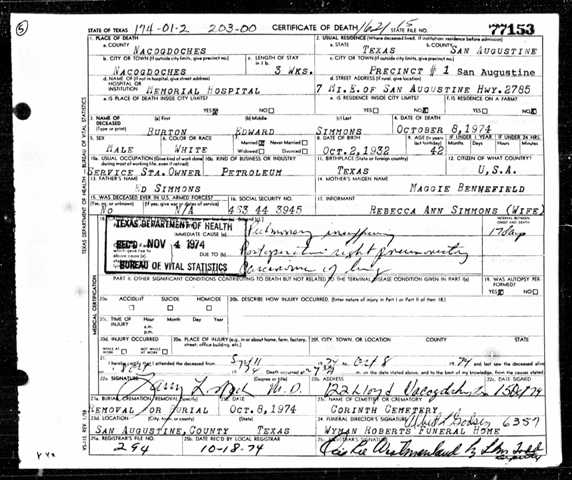 5
STATE OF TEXAS 174-01-2 203-00 CERTIFICATE OF DEATH STATE FILE NO. 77153
1. PLACE OF DEATH 2. USUAL RESIDENCE (Where deceased lived. If institution: residence before admission)
a. COUNTY NACOGDOCHES a. STATE TEXAS b. COUNTY SAN AUGUSTINE
b. CITY OR TOWN (If outside city limits, give precinct no.) c. LENGTH OF STAY in 1 b. c. CITY OR TOWN (If outside city limits, give precinct no.)
NACOGDOCHES 3 WKS. PRECINCT # 1 San Augustine
d. NAME OF (If not in hospital, give street address) HOSPITAL OR INSTITUTION d. STREET ADDRESS (If rural, give location)
MEMORIAL HOSPITAL 7 MI.E.OF SAN AUGUSTINE HWY.2785
e. IS PLACE OF DEATH INSIDE CITY LIMITS? YES NO e. IS RESIDENCE INSIDE CITY LIMITS? YES NO f. IS RESIDENCE ON A FARM? YES NO
3. NAME OF DECEASED (Type or print) (a) First (b) Middle (c) Last 4. DATE OF DEATH
BURTON EDWARD SIMMONS OCTOBER 8,1974
5. SEX 6. COLOR OR RACE 7. Married Never Married Widowed Divorced 8. DATE OF BIRTH 9. AGE (In years last birthday) IF UNDER 1 YEAR IF UNDER 24 HRS.
MALE WHITE OCT.2,1932 42
10a. USUAL OCCUPATION (Give kind of work done during most of working life, even if retired) 10b. KIND OF BUSINESS OR INDUSTRY 11. BIRTHPLACE (State or foreign country) 12. CITIZEN OF WHAT COUNTRY?
SERVICE STA.OWNER PETROLEUM TEXAS U,S.A.
13. FATHER'S NAME 14. MOTHER'S MAIDEN NAME
ED SIMMONS MAGGIE BENNEFIELD
15. WAS DECEASED EVER IN U.S. ARMED FORCES? 16. SOCIAL SECURITY NO.
(Yes, no, or unknown) (If yes, give war or dates of service)
NO N/A 463 44 3945 REBECCA ANN SIMMONS (WIFE)
TEXAS DEPARTMENT OF HEALTH
REC'D NOV 4 1974
BUREAU OF VITAL STATISTICS
IMMEDIATE CAUSE (a) Pulmonary insufficiency
DUE TO (b) Postoperative right pneumonectomy
Carcinoma of lung
INTERVAL BETWEEN ONSET AND DEATH
PART II. OTHER SIGNIFICANT CONDITIONS CONTRIBUTING TO DEATH BUT NOT RELATED TO THE TERMINAL DISEASE CONDITION GIVEN IN PART I(a) 19. WAS AUTOPSY PERFORMED? YES NO
20a. ACCIDENT SUICIDE HOMICIDE 20b. DESCRIBE HOW INJURY OCCURRED. (Enter nature of injury in Part I or Part II of item 18)
20c. TIME OF INJURY Hour Month Day Year
a.m.
p.m.
20d. INJURY OCCURRED WHILE AT WORK NOT WHILE AT WORK 20e. PLACE OF INJURY (e.g., in or about home, farm, factory, street, office building, etc.) 20f. CITY, TOWN, OR LOCATION COUNTY STATE
21. I hereby certify that I attended the deceased from 19 74 to Oct 8 19 74 and last saw the deceased alive
on the date stated above, and to the best of my knowledge, from the causes stated.
22a. SIGNATURE (Degree or title) M.D. 22b. ADDRESS 22c. DATE SIGNED
23a. BURIAL, CREMATION, REMOVAL (Specify) 23b. DATE 23c. NAME OF CEMETERY OR CREMATORY
REMOVAL FOR BURIAL OCT.8,1974 CORINTH CEMETERY
23d. LOCATION (City, town, or county) (State) 24. FUNERAL DIRECTOR'S SIGNATURE 6357
SAN AUGUSTINE,COUNTY TEXAS WYMAN ROBERTS FUNERAL HOME
25a. REGISTRAR'S FILE NO. 25b. DATE REC'D BY LOCAL REGISTRAR 25c. REGISTRAR'S SIGNATURE
294 10-18-74
TEXAS DEPARTMENT OF HEALTH - BUREAU OF VITAL STATISTICS
MEDICAL CERTIFICATION